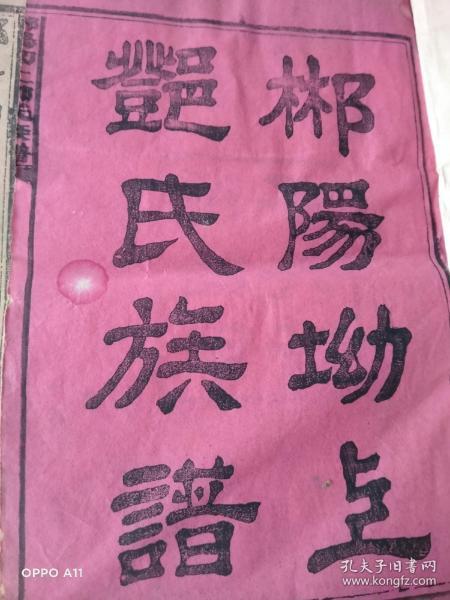 郴陽坳上
酆氏族譜
OPPO A11
孔夫子旧书网
www.kongfz.com